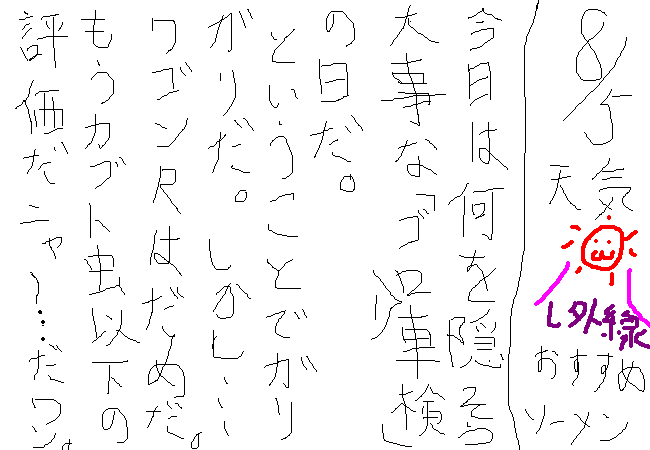 8/5
天気
し外線
おすすめ
ソーメン
今日は何を隠そう
大事な「ゴ車検」
の日だ。
ということでガリ
ガリだ。しかし…
ワゴン尺はだめだ。
もうカブト虫以下の
評価だニャー…だワン。